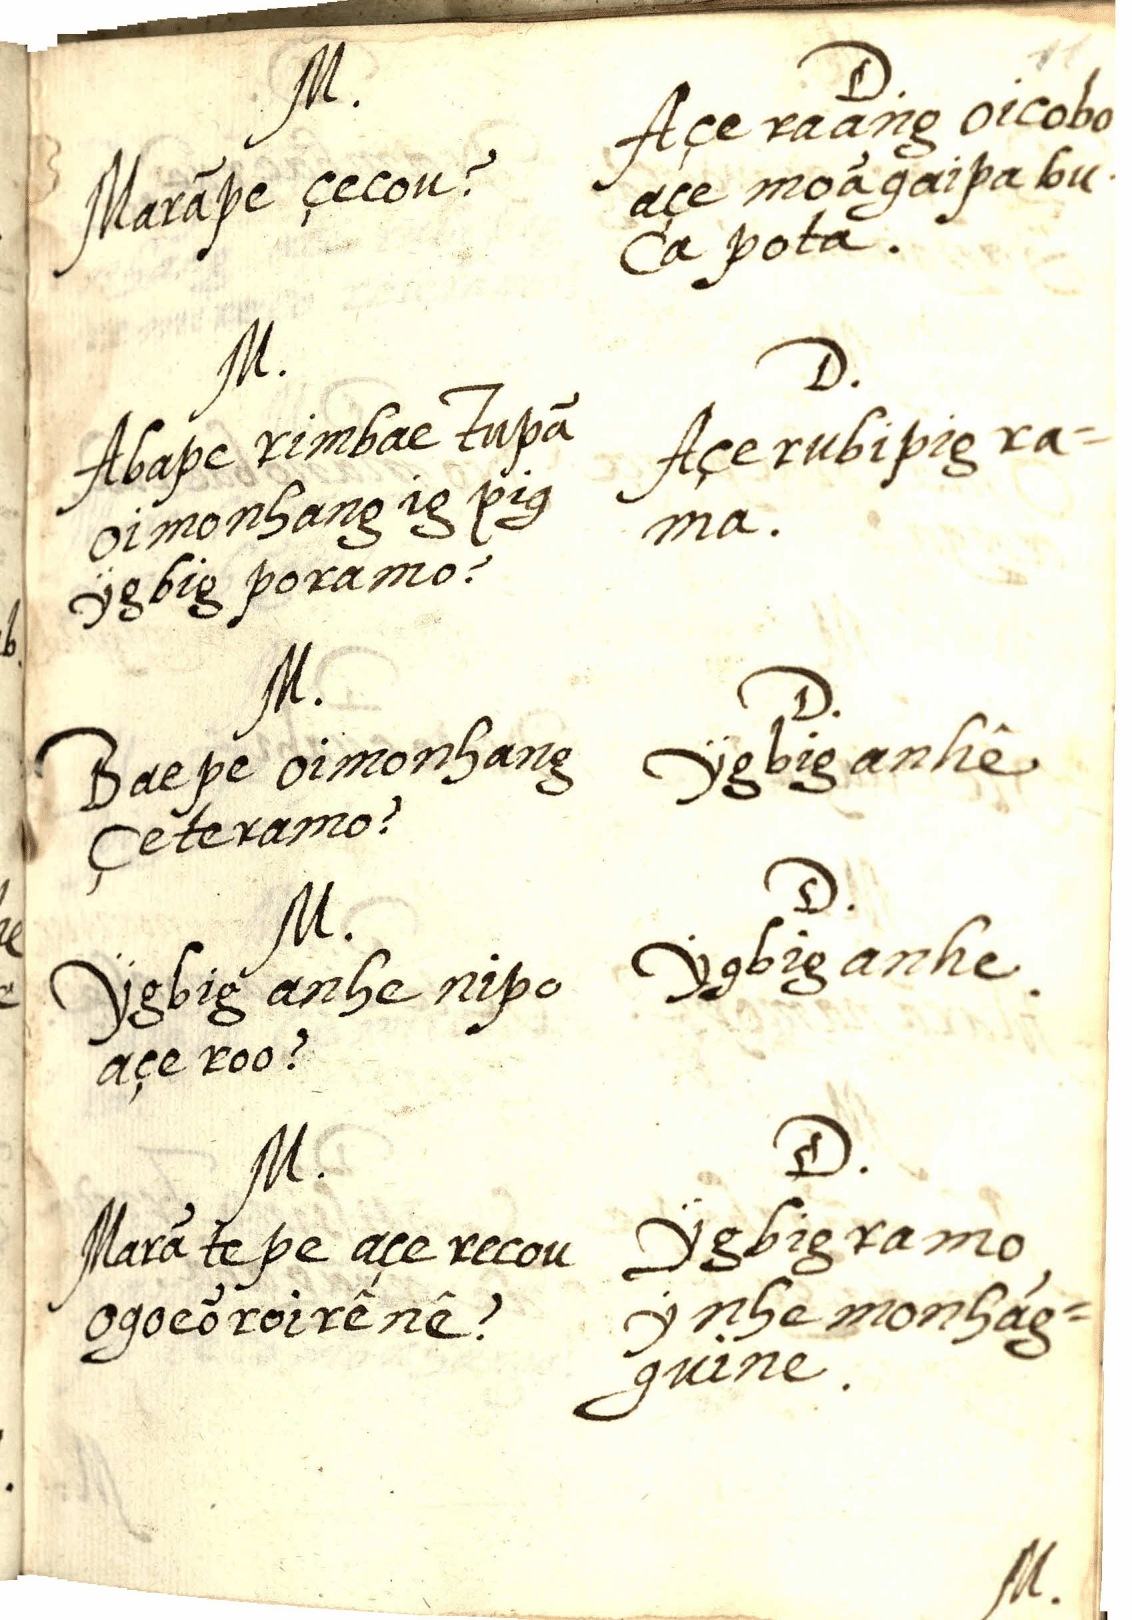 M.
Marãpe çecou?
D
Açe raãng oicobo
açe moãgaipa bu-
ca potã.
M.
Abape rimbae Tupã
oimonhang ig pig
ÿgbig poramo?
D.
Açe rubipig ra=
ma.
M.
Baepe oimonhang
çeteramo?
D.
Ÿgbig anhê
M.
Ÿgbig anhe nipo
açe roo?
D.
Ÿgbig anhe.
M.
Marã te pe açe recou
ogoeõ roirê nê?
D.
Ÿgbig ramo
ÿ nhe monhág=
guine.
M.